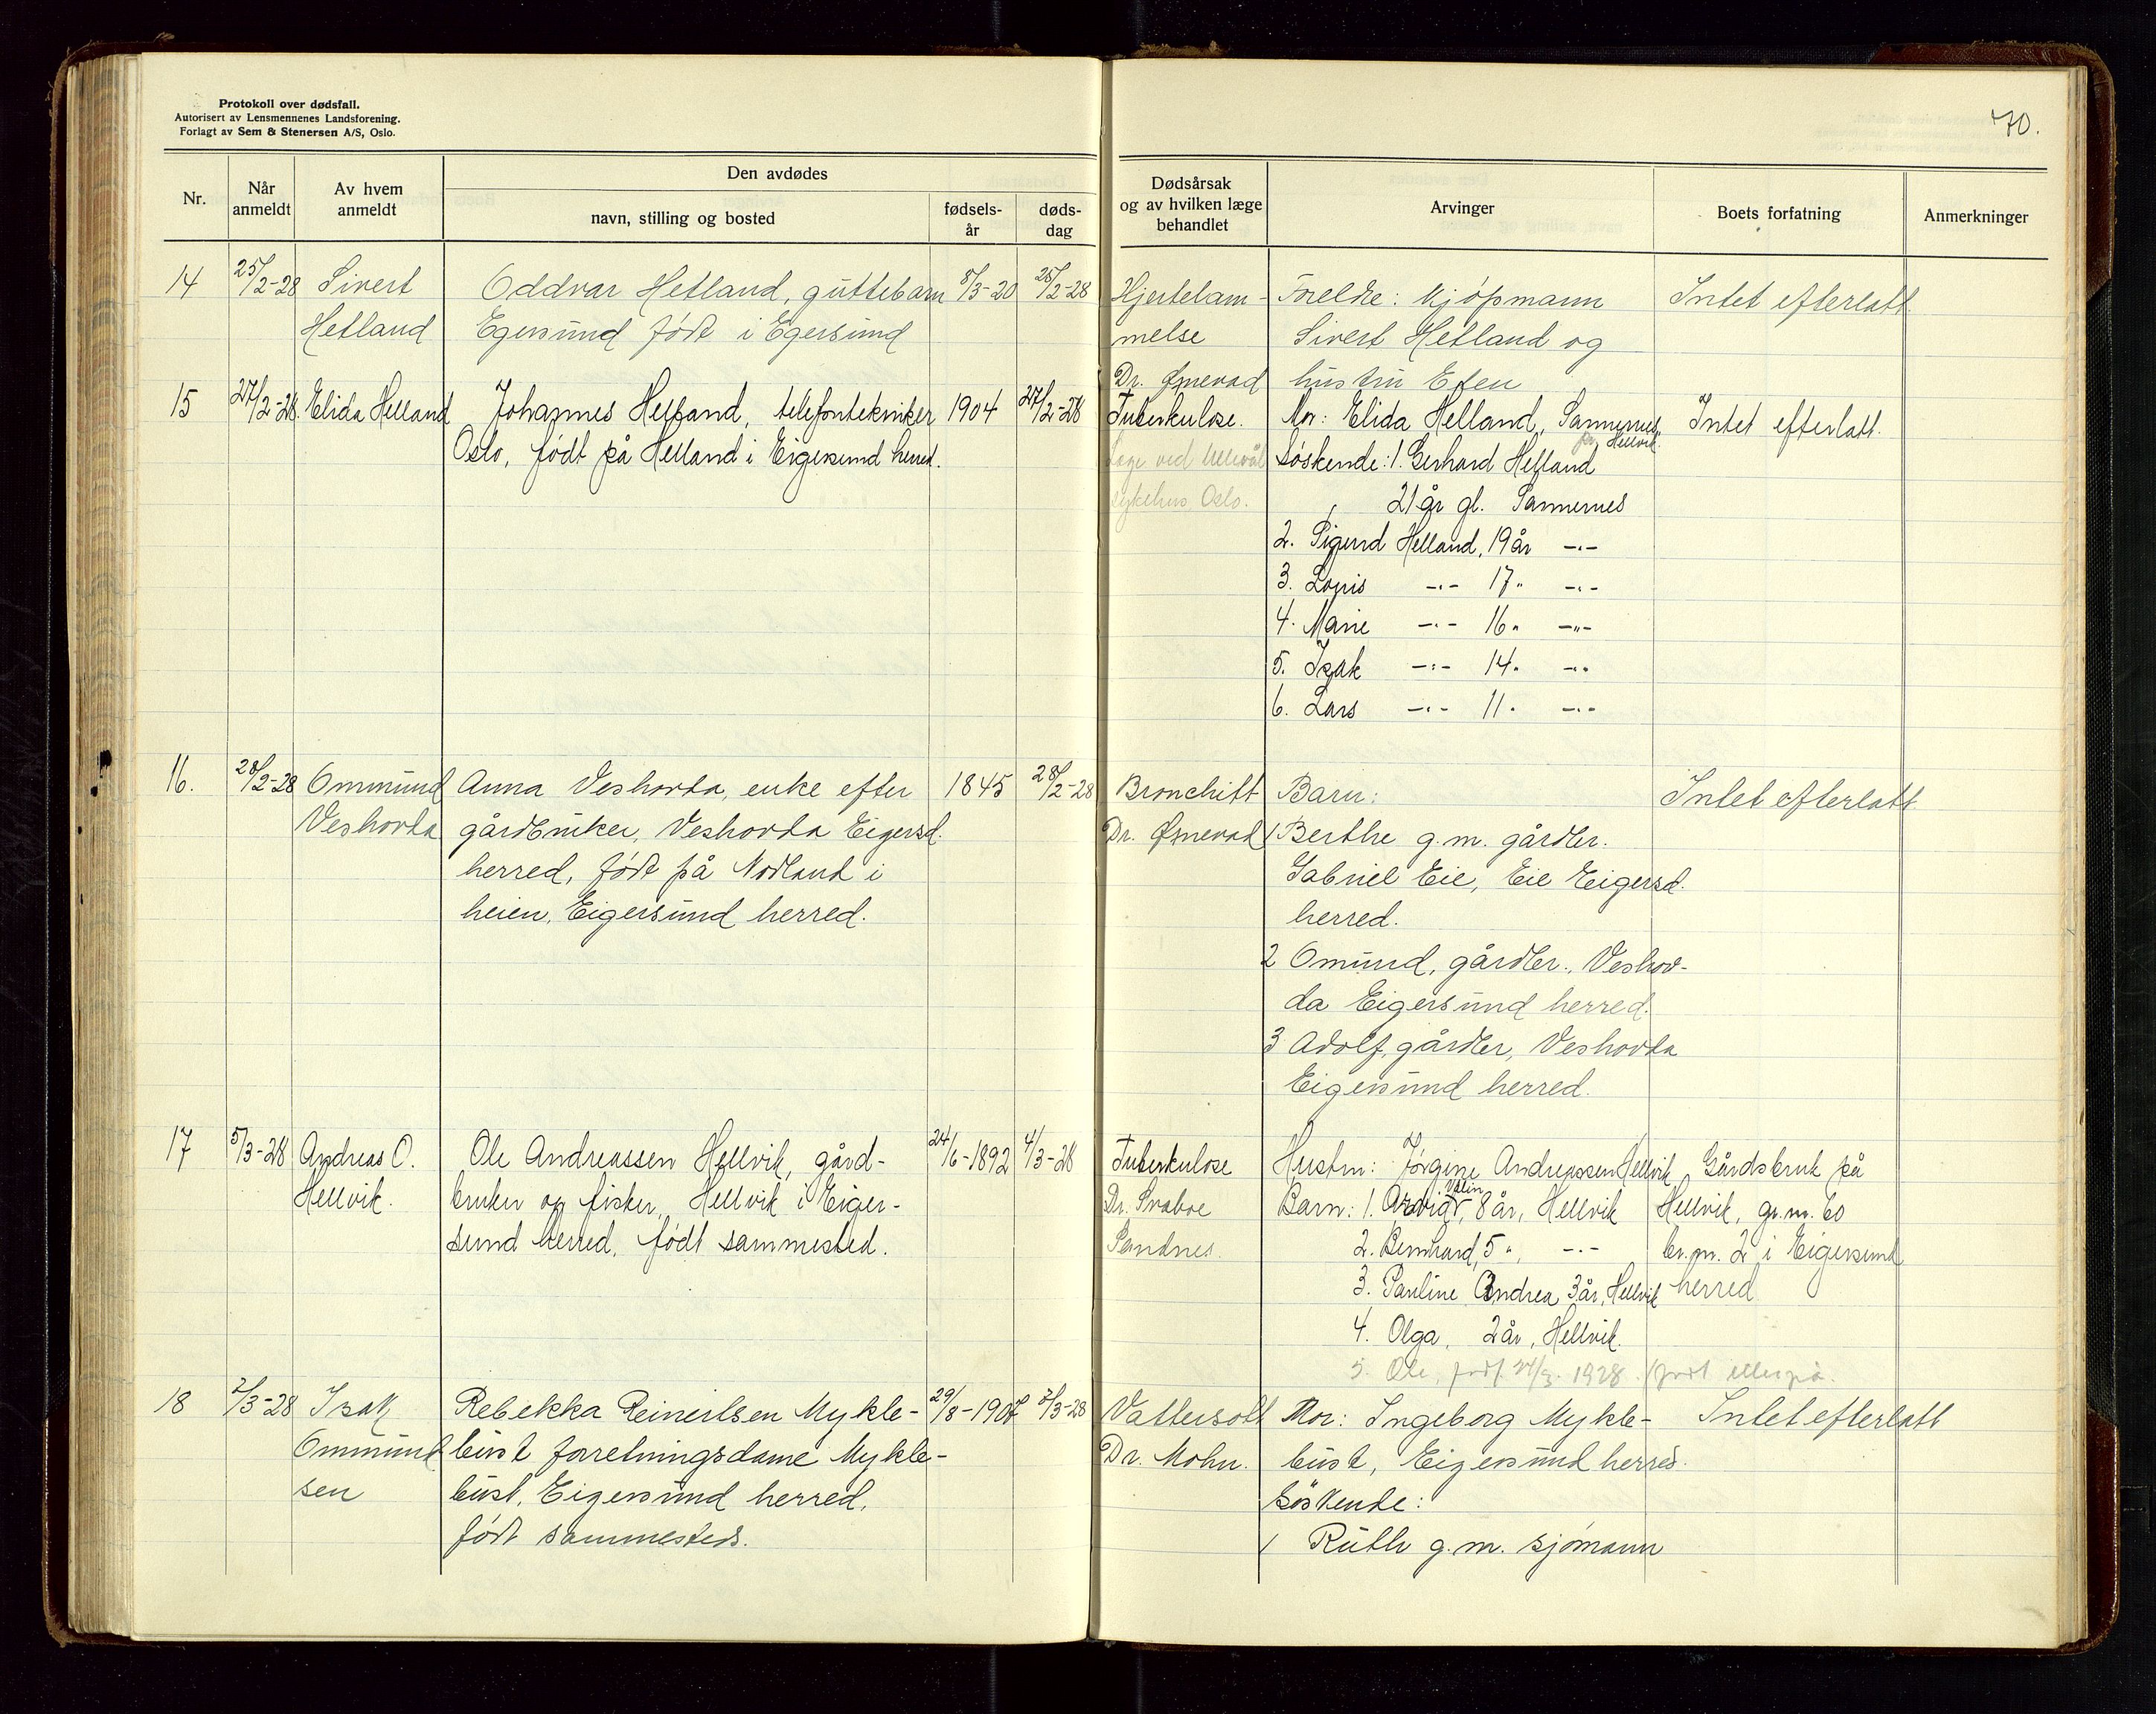 Protokoll over dødsfall.
Autorisert av Lensmennenes Landsforening.
Forlagt av Sem & Stenersen A/S, Oslo.
70.
Nr.
Når anmeldt
Av hvem anmeldt
Den avdødes
navn, stilling og bosted
fødsels-år
døds-dag
Dødsårsak og av hvilken læge behandlet
Arvinger
Boets forfatning
Anmerkninger
14
25/2-28
Sivert
Hetland
Oddvar Hetland, guttebarn
Egersund født i Egersund
8/3-20
25/2-28
Hjertelam-
melse
Dr. Ømevad
Foreldre: Kjøpmann
Sivert Hetland og
hustru Eten
Intet efterlatt
15
27/2-28.
Elida Helland
Johannes Helland, telefontekniker
Oslo, født på Helland i Eigersund herred.
1904
27/2-28
Tuberkulose.
læge ved Ullevål
sykehus Oslo.
Mor: Elida Helland, Sannernes,
Hellvik.
Søskende: 1. Gerhard Helland
21 år gl. Sannernes
2. Sigurd Helland, 19 år -"-
3. Lovis -"- 17 " -"-
4. Marie -"- 16 " -"-
5. Isak -"- 14 " -"-
6. Lars -"- 11 " -"-
Intet efterlatt.
16.
28/2-28
Ommund
Veshovda
Anna Veshovda, enke efter
gårdbruker, Veshovda Eigersd.
herred, født på Nodland i
heien, Eigersund herred.
1845
28/2-28
Bronchitt
Dr. Ømevad
Barn:
1 Berthe g.m. gårdbr.
Gabriel Eie, Eie Eigersd.
herred.
2 Omund, gårdbr., Veshov-
da Eigersund herred.
3 Adolf, gårdbr, Veshovda
Eigersund herred.
Intet efterlatt
17
5/3-28
Andreas O.
Hellvik.
Ole Andreassen Hellvik, gård-
bruker og fisker, Hellvik i Eiger-
sund herred, født sammested.
24/6-1892
4/3-28
Tuberkulose
Dr. Svaboe
Sandnes.
Hustru: Jørgine Andreassen Hellvik
Barn: 1. Arvid, 8 år, Hellvik
2. Bernhard, 5 ", -"-
3. Pauline Andrea 3 år, Hellvik
4. Olga, 2 år, Hellvik.
5. Ole, født 1928.
Gårdsbruk på
Hellvik, gr.nr. 60
br.nr. 2 i Eigersund
herred
18
7/3-28
Isak
Ommund
sen
Rebekka Reinertsen Mykle-
bust forretningsdame Mykle-
bust, Eigersund herred,
født sammesteds.
29/8-1907
7/3-28
Vattersott
Dr. Mohn.
Mor: Ingeborg Mykle-
bust, Eigersund herred.
Søskende:
1 Ruth g.m. sjømann
Intet efterlatt